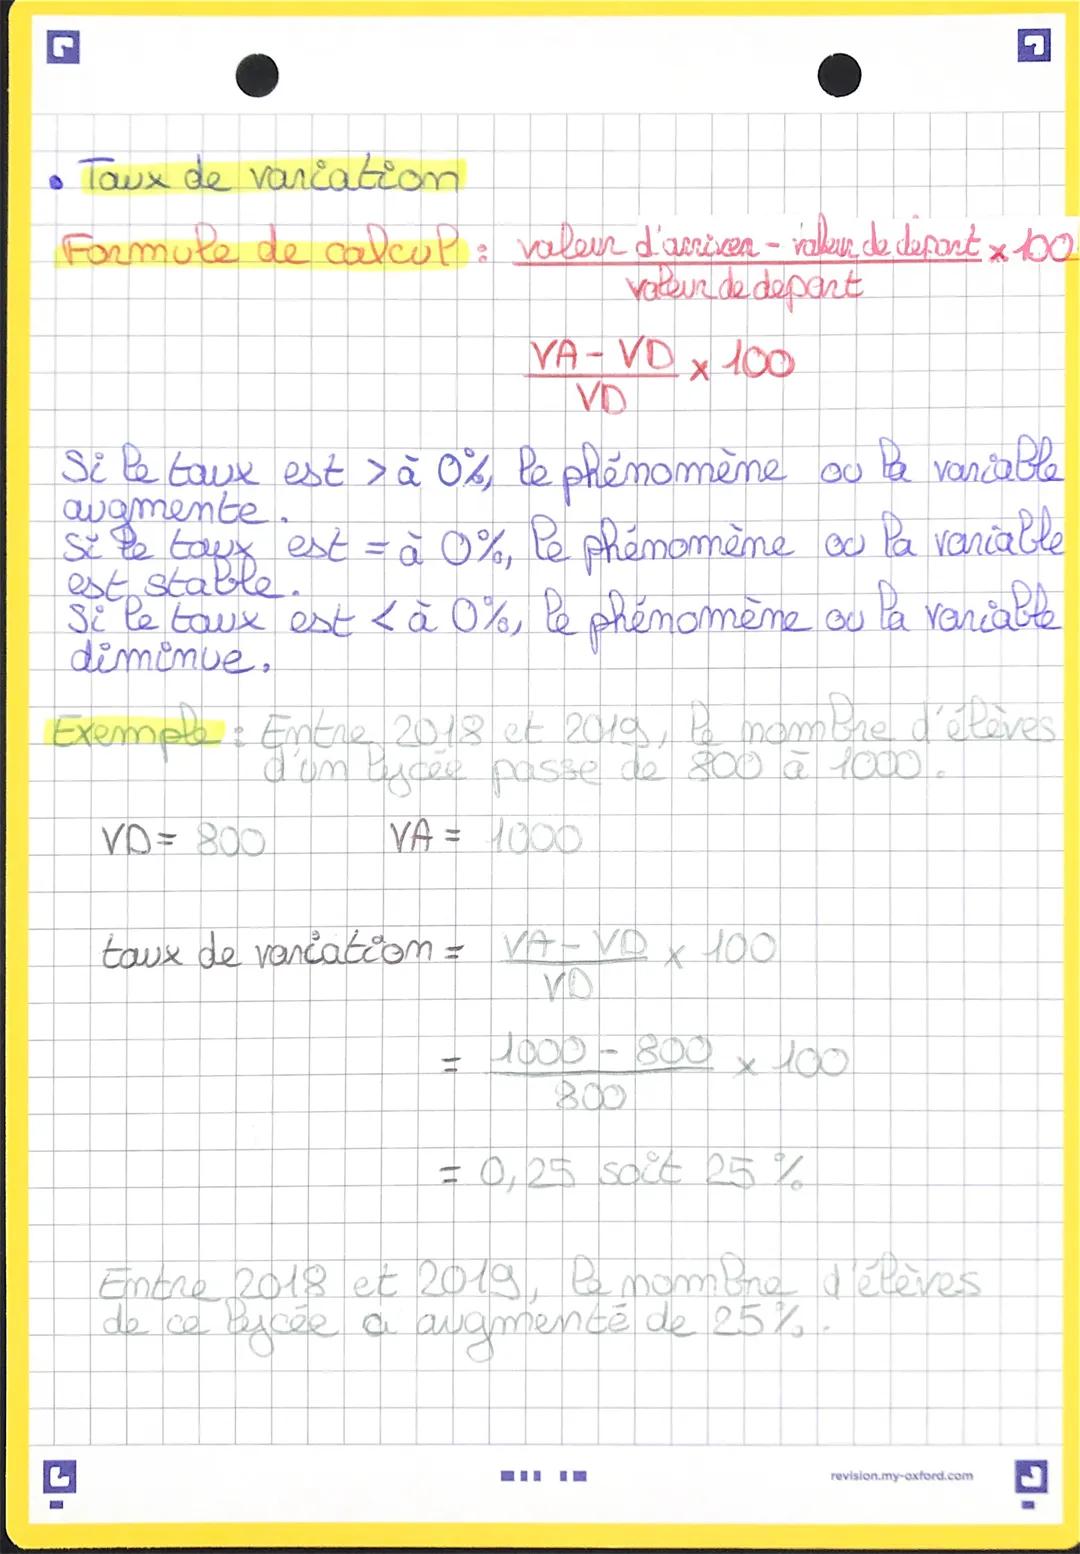 • Taux de variation
Formule de calcul : valeur d'arriver - valeur de depart × 100
valeur de depart
VA - VD × 100
VD
Si le taux est > à 0%, le phénomène ou la variable
augmente.
Si le taux est = à 0%, le phénomène ou la variable
est stable.
Si le taux est < à 0%, le phénomène ou la variable
diminue.
Exemple : Entre 2018 et 2019, le nombre d'élèves
d'un lycée passe de 800 à 1000.
VD = 800 VA = 1000
taux de variation = VA - VD × 100
VD
= 1000 - 800 × 100
800
= 0,25 soit 25 %
Entre 2018 et 2019, le nombre d'élèves
de ce lycée a augmenté de 25%.
revision.my-oxford.com